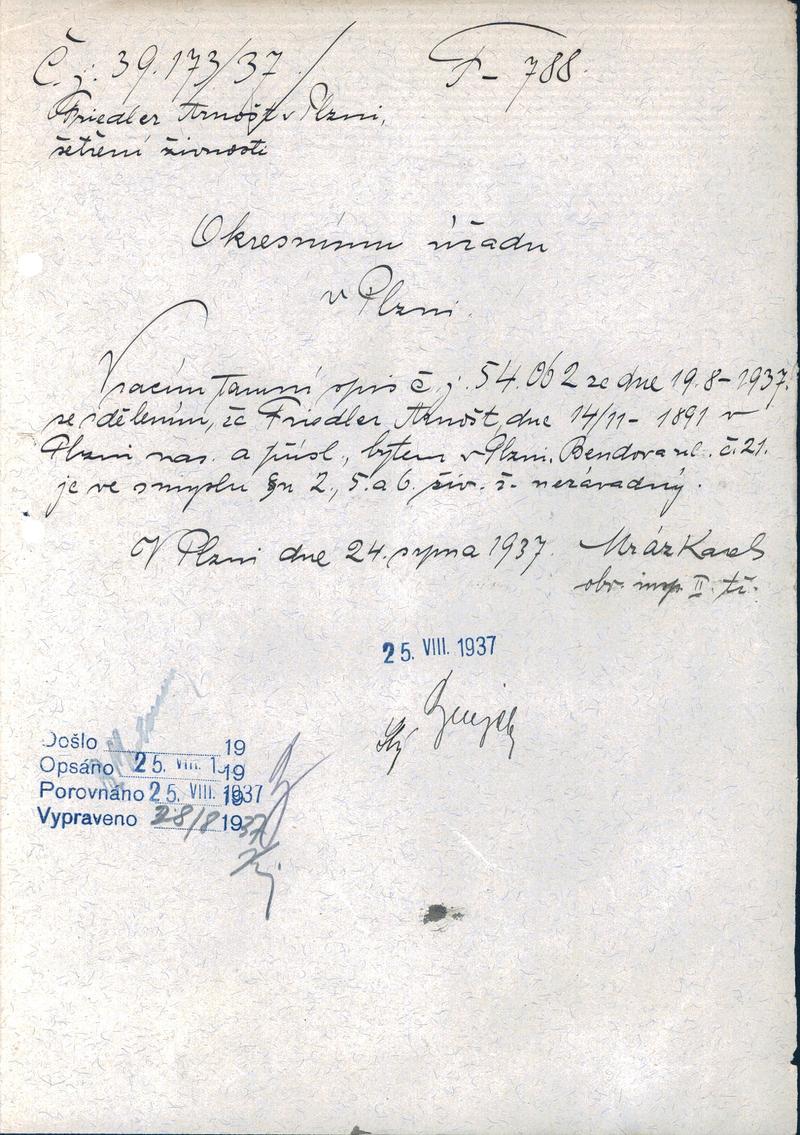 Č. j. 39.173/37.
F - 788.
Friedler Arnošt v Plzni,
šetření živnosti
Okresnímu úřadu
v Plzni.
Vracím tamní spis č. j. 54.062 ze dne 19.8-1937.
se sdělením, že Friedler Arnošt, dne 14/11- 1891 v
Plzni nar. a přísl., bytem v Plzni, Bendova ul. č. 21.
je ve smyslu §u 2., 5. a 6. živ. ř. nezávadný.
V Plzni dne 24. srpna 1937.
Mráz Karel
obv. insp. II. tř.
25. VIII. 1937
Došlo 19
Opsáno 25. VIII. 19
Porovnáno 25. VIII. 1937
Vypraveno 28/8 1937